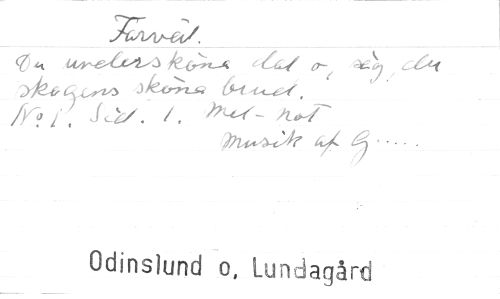 Farväl.
Du undersköna dal o, säg, du
skogens sköna brud.
No 1. Sid. 1. Mel-not
Musik af G.....
Odinslund o. Lundagård